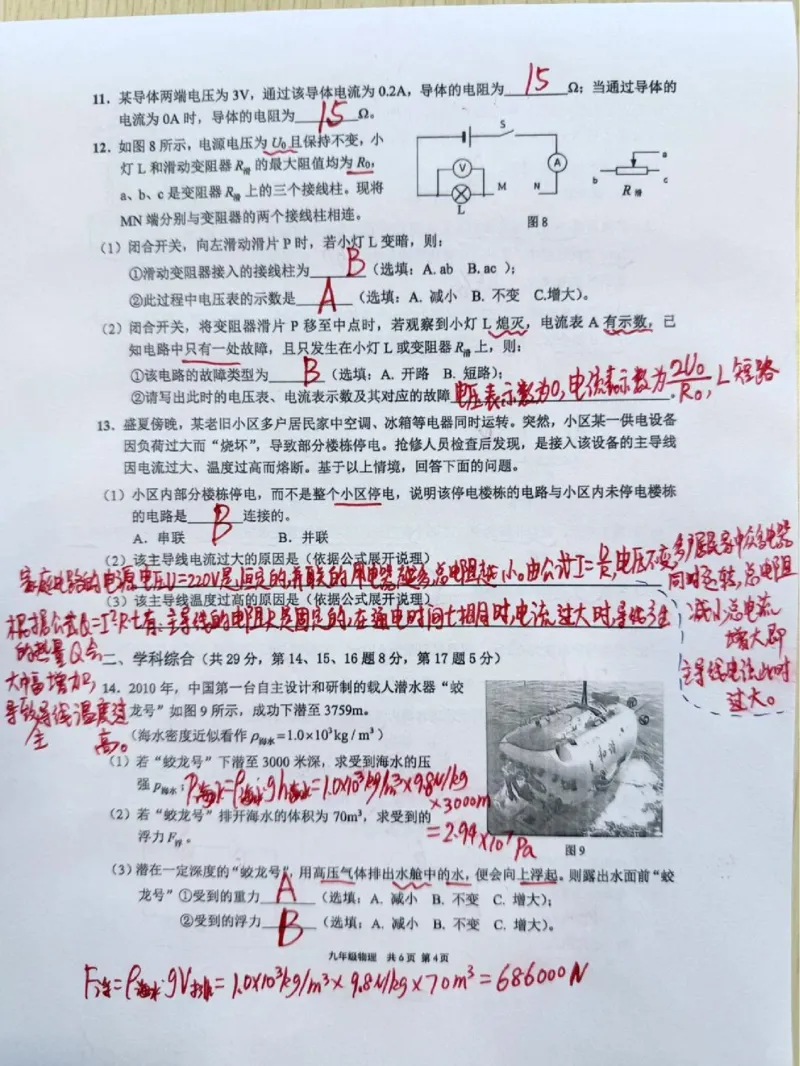 11. 某导体两端电压为 3V，通过该导体电流为 0.2A，导体的电阻为 15 Ω；当通过导体的
电流为 0A 时，导体的电阻为 15 Ω。
12. 如图 8 所示，电源电压为 U₀ 且保持不变，小
灯 L 和滑动变阻器 R滑 的最大阻值均为 R₀，
a、b、c 是变阻器 R滑 上的三个接线柱。现将
MN 端分别与变阻器的两个接线柱相连。
S
V
A
L
M
N
a
b
c
R滑
图8
（1）闭合开关，向左滑动滑片 P 时，若小灯 L 变暗，则：
①滑动变阻器接入的接线柱为 B （选填：A. ab B. ac ）；
②此过程中电压表的示数是 A （选填：A. 减小 B. 不变 C.增大）。
（2）闭合开关，将变阻器滑片 P 移至中点时，若观察到小灯 L 熄灭，电流表 A 有示数，已
知电路中只有一处故障，且只发生在小灯 L 或变阻器 R滑 上，则：
①该电路的故障类型为 B （选填：A. 开路 B. 短路）；
②请写出此时的电压表、电流表示数及其对应的故障 电压表示数为0，电流表示数为2U₀/R₀，L短路
13. 盛夏傍晚，某老旧小区多户居民家中空调、冰箱等电器同时运转。突然，小区某一供电设备
因负荷过大而“烧坏”，导致部分楼栋停电。抢修人员检查后发现，是接入该设备的主导线
因电流过大、温度过高而熔断。基于以上情境，回答下面的问题。
（1）小区内部分楼栋停电，而不是整个小区停电，说明该停电楼栋的电路与小区内未停电楼栋
的电路是 B 连接的。
A. 串联 B. 并联
（2）该主导线电流过大的原因是（依据公式展开说理）
家庭电路的电源电压U=220V是恒定的，并联的用电器越多，总电阻越小。由公式I=U/R，电压不变，多户居民家中众多电器
同时运转，总电阻
减小，总电流
增大，即
主导线电流此时
过大。
（3）该主导线温度过高的原因是（依据公式展开说理）
根据公式Q=I²Rt有：主导线的电阻R是固定的，在通电时间t相同时，电流过大时，导线产生
的热量Q会
大幅增加，
导致导线温度过
高。
二、学科综合（共 29 分，第 14、15、16 题 8 分，第 17 题 5 分）
14. 2010 年，中国第一台自主设计和研制的载人潜水器“蛟
龙号”如图 9 所示，成功下潜至 3759m。
（海水密度近似看作 ρ海水=1.0×10³kg/m³）
（1）若“蛟龙号”下潜至 3000 米深，求受到海水的压
强 p海水；P海水=ρ海水gh海水=1.0×10³kg/m³×9.8N/kg
×3000m
=2.94×10⁷Pa
（2）若“蛟龙号”排开海水的体积为 70m³，求受到的
浮力F浮。
图9
（3）潜在一定深度的“蛟龙号”，用高压气体排出水舱中的水，便会向上浮起。则露出水面前“蛟
龙号”①受到的重力 A （选填：A. 减小 B. 不变 C. 增大）；
②受到的浮力 B （选填：A. 减小 B. 不变 C. 增大）。
九年级物理 共 6 页 第 4 页
F浮=ρ海水gV排=1.0×10³kg/m³×9.8N/kg×70m³=686000N